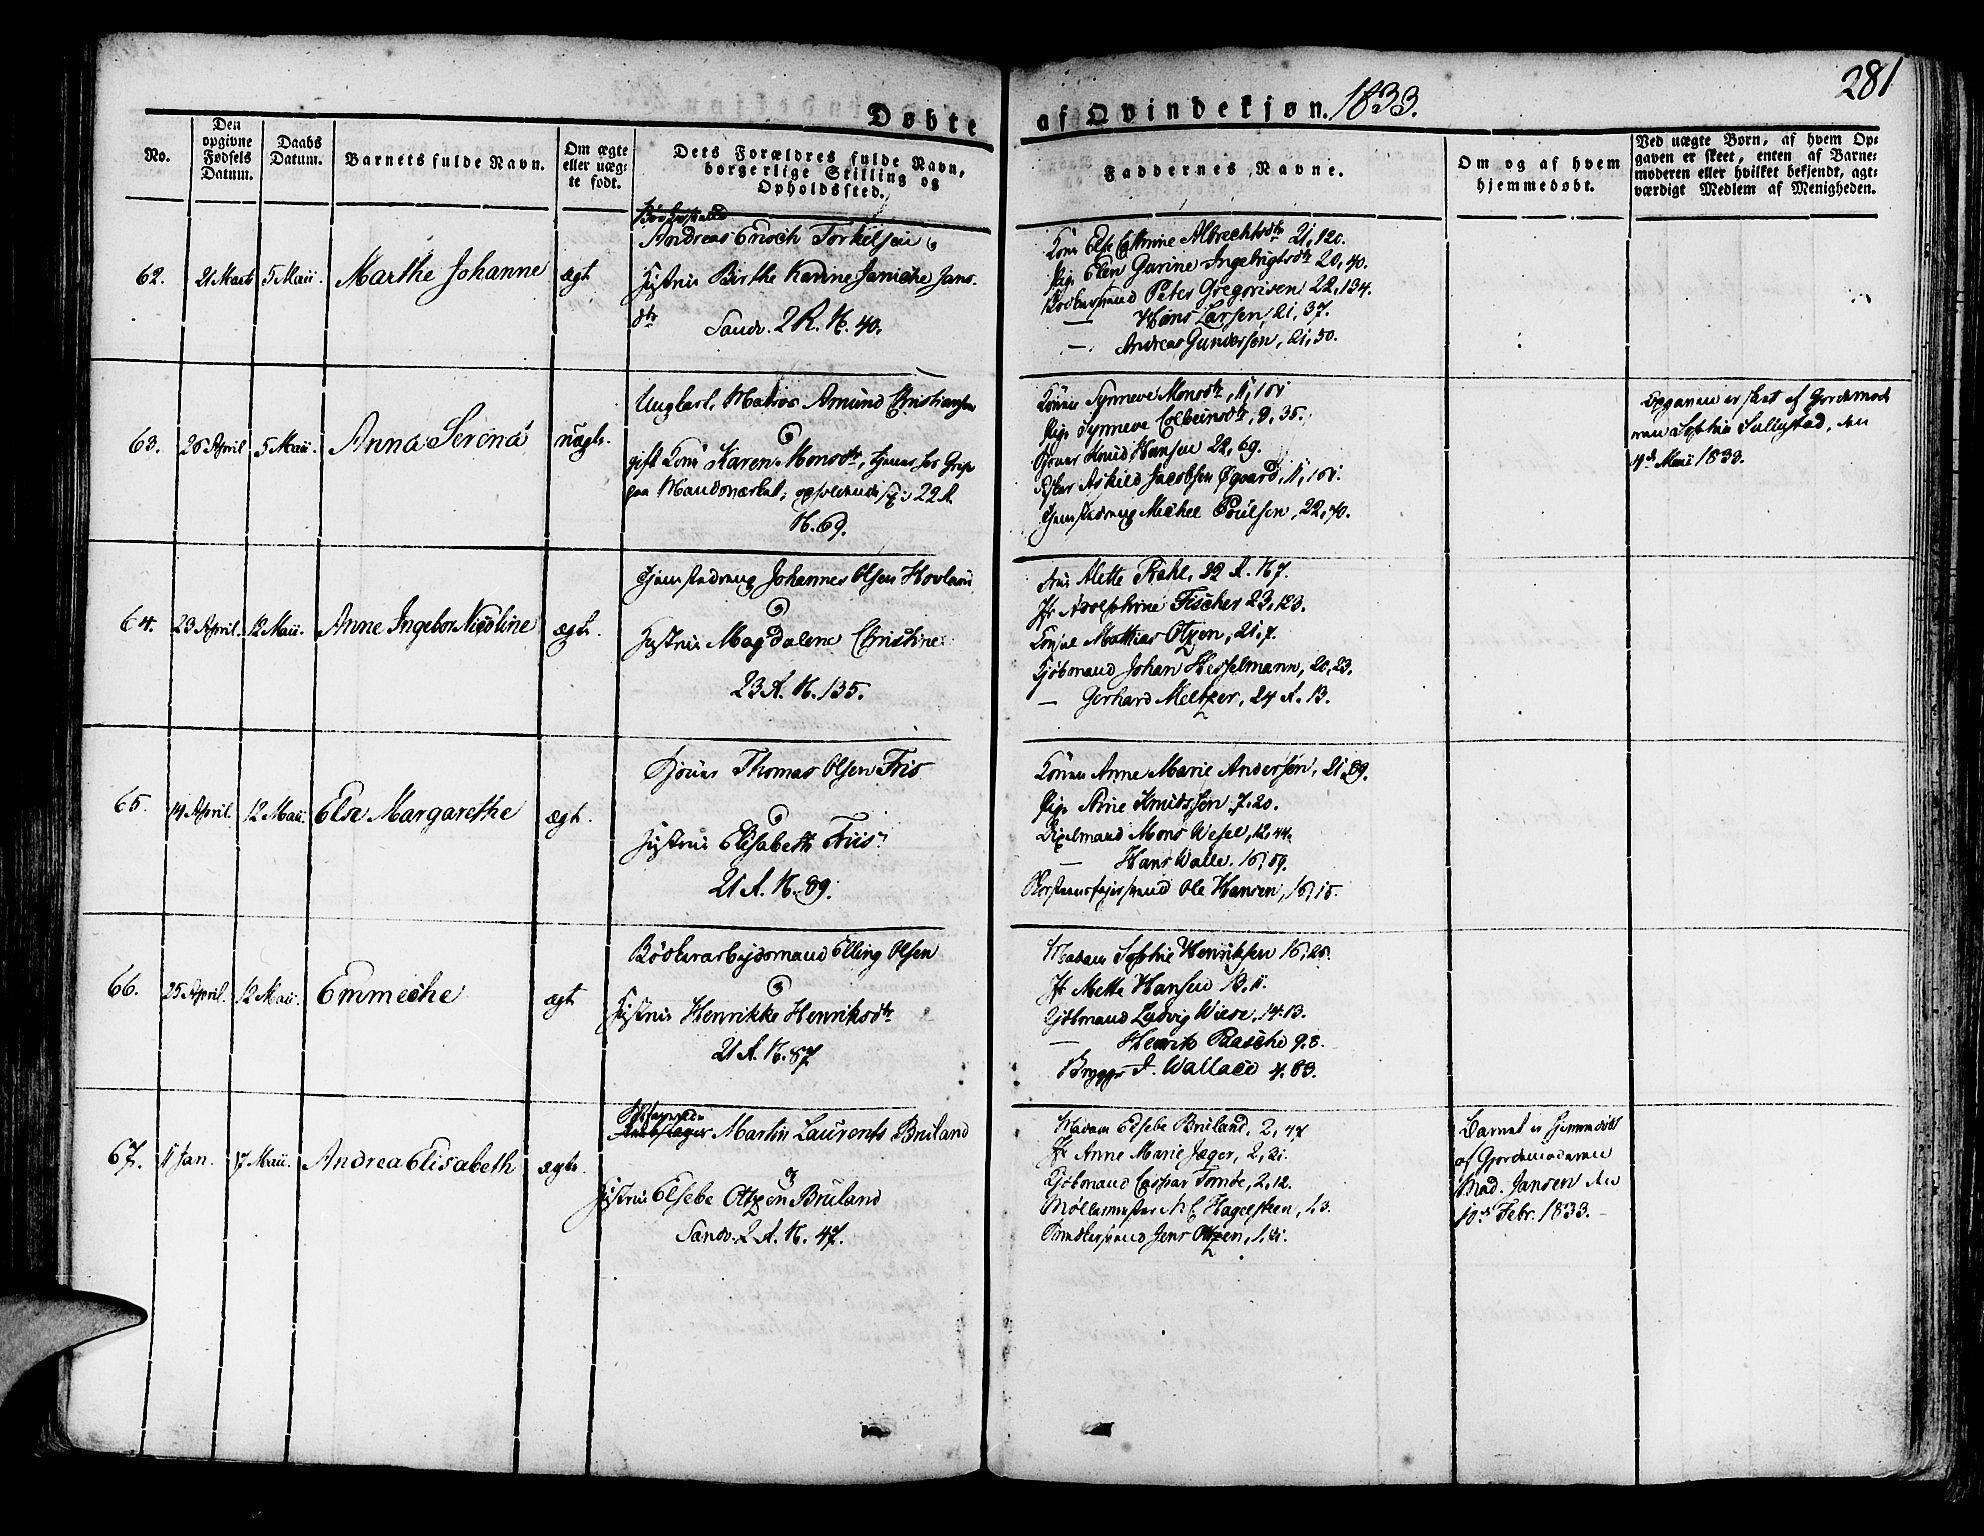 281
Døbte af Qvindekjøn. 1833.
No.
Den opgivne Fødsels Datum.
Daabs Datum.
Barnets fulde Navn.
Om ægte eller uægte født.
Dets Forældres fulde Navn, borgerlige Stilling og Opholdssted.
Faddernes Navne.
Om og af hvem hjemmedøbt.
Ved uægte Børn, af hvem Opgaven er skeet, enten af Barnemoderen eller hvilket bekjendt, agtværdigt Medlem af Menigheden.
62. 21 Marts 5 Maii. Marthe Johanne ægt
Andreas Enoch Torkelsen
Hustrue Birthe Karine Janiche Jans-
dtr
Sandv. 2 R. N. 40.
Kone Else Cathrine Albrechtsdtr 21, 120.
Pige Elen Gurine Ingebrigtsdtr 20, 40.
Bødkersvend Peter Gregorisen 22, 134.
— Hans Larsen, 21, 37.
— Andreas Gundersen, 21, 50.
63. 26 April 5 Maii. Anna Serena uægte.
Ungkarl, Matros Amund Christiansen
&
gift Kone Karen Monsdtr, tjener hos
22 R.
N. 69.
Konen Synneve Monsdtr, 11, 101
Pige Synneve Colbeinsdtr, 9, 35.
Knud Hansen 22, 69.
Askild Jacobsen Øgaard, 11, 101.
Tjenestedreng Michel Poulsen, 22, 40.
Opgaven er skeet af Gjordemod-
ren Sophie Sellystad, den
4de Maii 1833.
64. 23 April. 12 Maii. Anne Ingebor Nicoline ægte.
Tjenestedreng Johannes Olsen Hovland
&
Hustrue Magdalene Christine
23 R. N. 135.
Frue Alette Krahl, 22 R. N 7.
Jfr Adolphine Fischer 23, 123.
Konsul Mathias Otzen, 21, 7.
Kjøbmand Johan Hesselmann, 20, 23.
— Gerhard Meltzer, 24 R. 13.
65. 14 April. 12 Maii. Else Margarethe ægt.
Thomas Olsen Friis
&
Hustrue Elisabeth Friis
21 R. N. 89.
Konen Anne Marie Andersen, 21, 89.
Pige Anne Knudssøn 7, 20.
Mons Wesel, 12, 44.
— Hans Walle, 16, 59.
Ole Hansen, 16, 15.
66. 25 April. 12 Maii. Emmeche ægt
Bødkerarbejdsmand Elling Olsen
&
Hustrue Henrikke Henriksdtr
21 R. N. 87
Madam Sophie Henriksen 16, 25.
Jfr Mette Hansen 18, 11.
Kjøbmand Ludvig Wiese, 14. 13.
— Henrik Paasche 9. 8.
Brygger J. Wallace 4. 83.
67. 11 Jan. 17 Maii. Andrea Elisabeth ægte.
Martin Laurents Bruland
&
Hustrue Elsebe Otzen Bruland
Sandv. 2 R. N. 47.
Madam Elsebe Bruland, 2, 47
Jfr Anne Marie Jæger, 2, 21.
Kjøbmand Caspar Tornøe, 2, 12.
Møllermester N. C. Hagelsteen, 1, 3.
Snedkersvend Jens Otzen, 1, 81.
Barnet er hjemmedøbt
af Gjordemoderen
Mad. Jansen den
10de Febr. 1833.